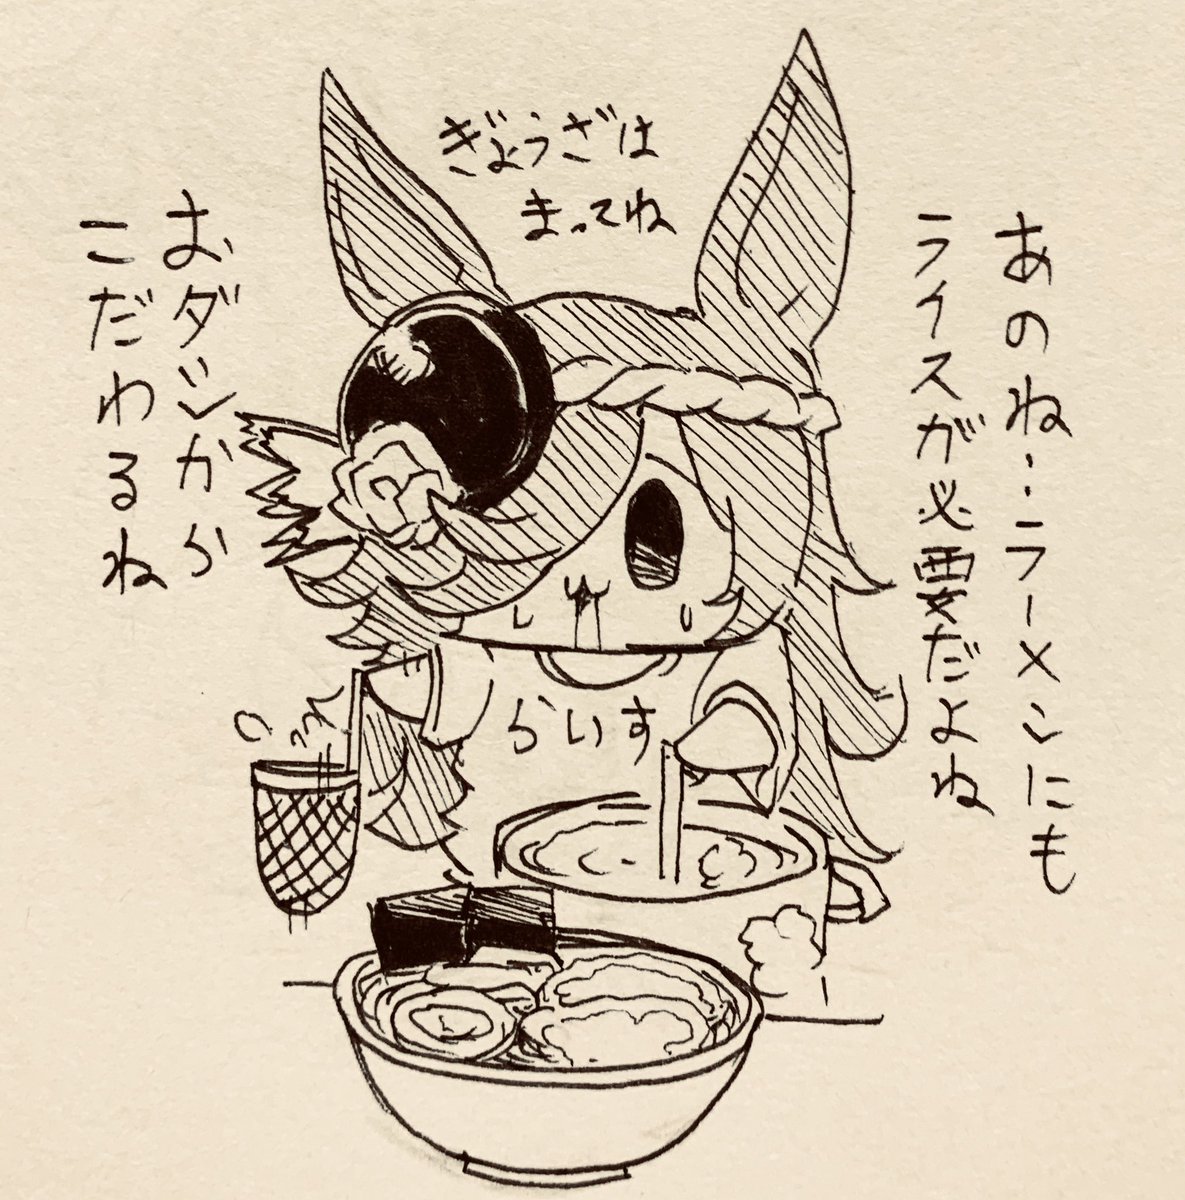 ぎょうざは
まってね
あのね…ラーメンにも
ライスが必要だよね
おダシから
こだわるね
らいす